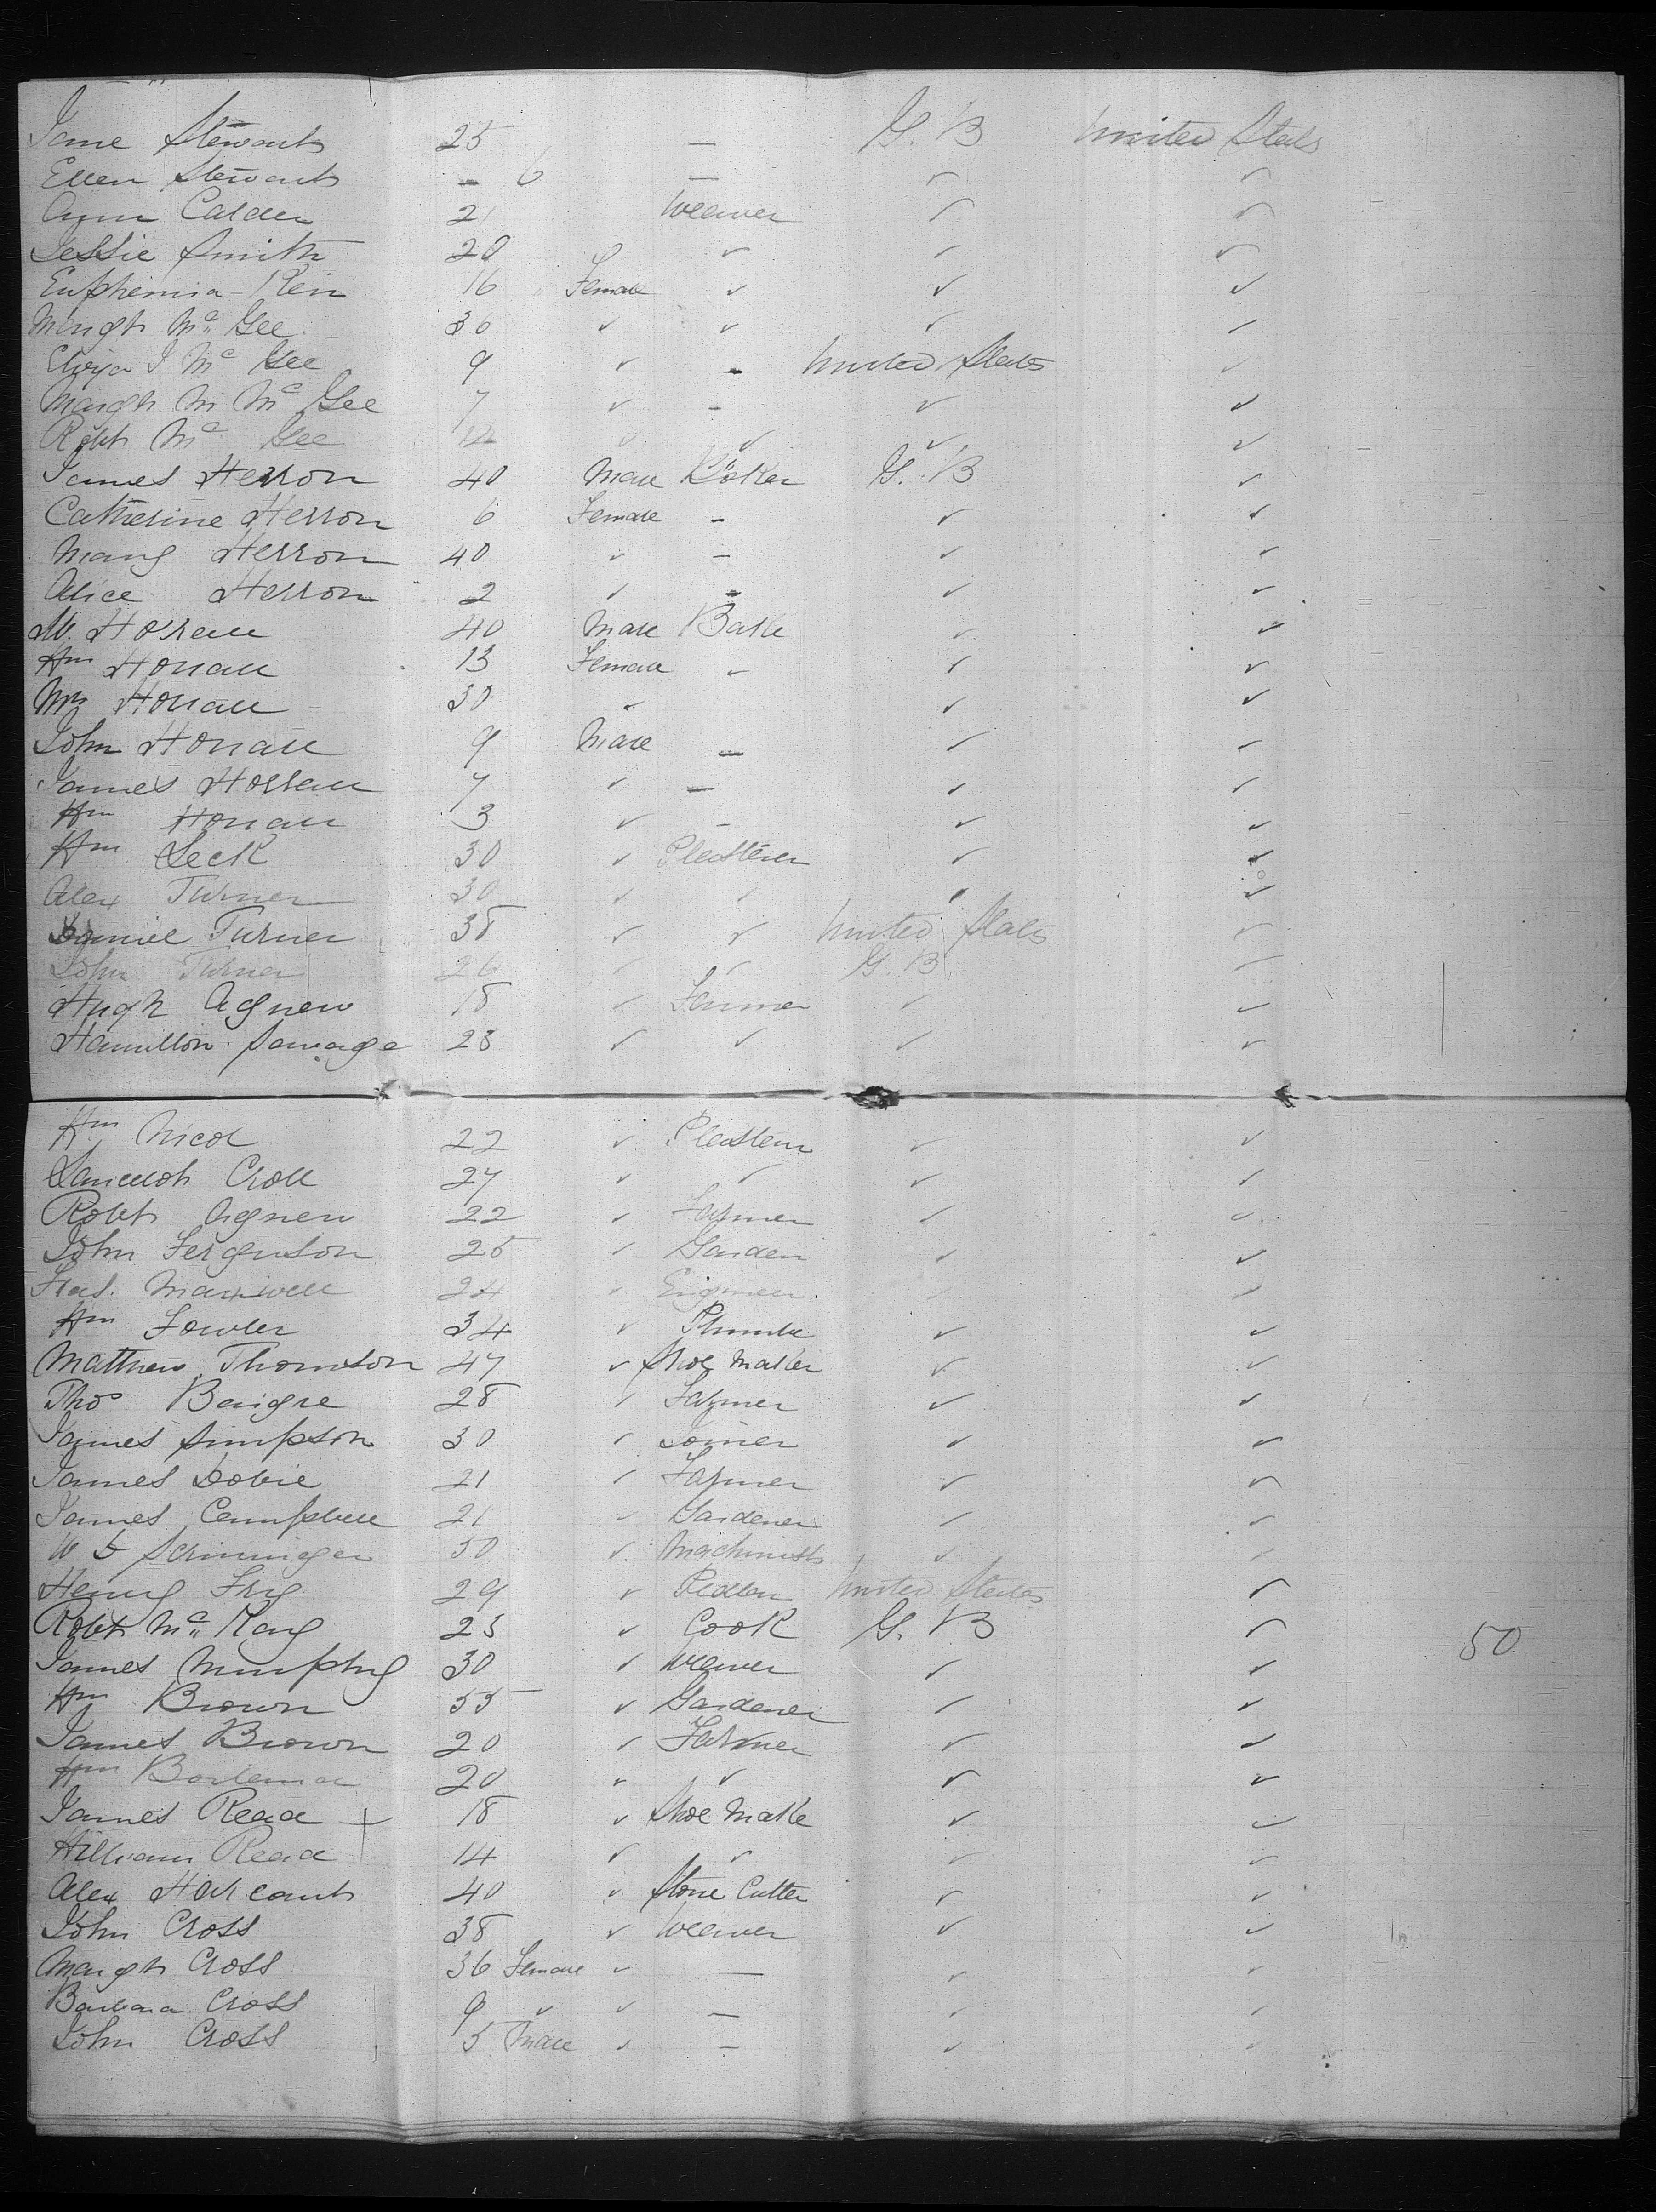 Jane Stewart 25 — G. B United States
Ellen Stewart - 6 — ✓ ✓
Ann Calder 21 Weaver ✓ ✓
Jessie Smith 20 ✓ ✓ ✓
Euphemia Rein 16 Female ✓ ✓ ✓
Margt Mc Gee 36 ✓ ✓ ✓ ✓
Eliza J Mc Gee 9 ✓ - United States ✓
Margt M Mc Gee 7 ✓ - ✓ ✓
Robt Mc Gee ✓ ✓ ✓ ✓
James Herron 40 Male G. B ✓
Catherine Herron 6 Female - ✓ ✓
Mary Herron 40 ✓ - ✓ ✓
Alice Herron 2 ✓ - ✓ ✓
M. Horran 40 Male Bake ✓ ✓
Wm Horran 13 Female ✓ ✓ ✓
Mrs Horran 30 ✓ ✓ ✓
John Horran 9 Male — ✓ ✓
James Horran 7 ✓ — ✓ ✓
Wm Horran 3 ✓ - ✓ ✓
Wm Leck 30 ✓ Plasterer ✓ ✓
Alex Turner 30 ✓ ✓ ✓ ✓
Daniel Turner 38 ✓ ✓ United States ✓
John Turner 26 ✓ ✓ G. B ✓
Hugh Agnew 18 ✓ Farmer ✓ ✓
Hamilton Savage 23 ✓ ✓ ✓ ✓
Wm Nicol 22 ✓ Plasterer ✓ ✓
Lancelot Croll 27 ✓ ✓ ✓ ✓
Robt Agnew 22 ✓ Farmer ✓ ✓
John Ferguson 25 ✓ Garden ✓ ✓
Fras. Maxwell 24 ✓ ✓ ✓
Wm Fowler 34 ✓ Plumbe ✓ ✓
Matthew Thomson 47 ✓ Shoe Maker ✓ ✓
Thos Baigre 28 ✓ Farmer ✓ ✓
James Simpson 30 ✓ Joiner ✓ ✓
James Dobie 21 ✓ Farmer ✓ ✓
James Campbell 21 ✓ Gardener ✓ ✓
W 50 ✓ Machinist ✓ ✓
Henry Fry 29 ✓ Pedlar United States ✓
Robt Mc Kay 23 ✓ Cook G. B ✓ 50
James Murphy 30 ✓ Weaver ✓ ✓
Wm Brown 55 ✓ Gardener ✓ ✓
James Brown 20 ✓ Farmer ✓ ✓
Wm 20 ✓ ✓ ✓ ✓
James Read 18 ✓ Shoe Make ✓ ✓
William Read 14 ✓ ✓ ✓ ✓
Alex 40 ✓ Stone Cutter ✓ ✓
John Cross 38 ✓ Weaver ✓ ✓
Margt Cross 36 Female ✓ — ✓ ✓
Barbara Cross 9 ✓ ✓ — ✓ ✓
John Cross 5 Male ✓ - ✓ ✓